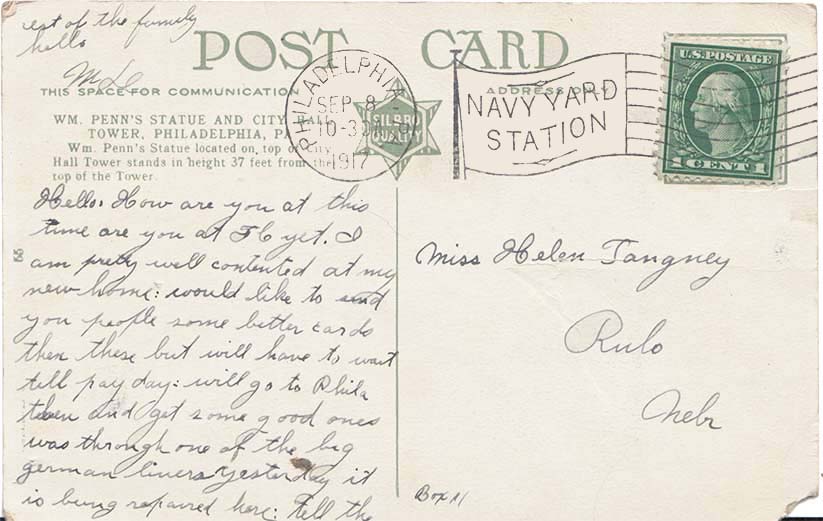 rest of the family
hello
POST CARD
THIS SPACE FOR COMMUNICATION
ADDRESS ONLY
WM. PENN'S STATUE AND CITY HALL
TOWER, PHILADELPHIA, PA
Wm. Penn's Statue located on, top of City
Hall Tower stands in height 37 feet from the
top of the Tower.
SILBRO
QUALITY
PHILADELPHIA
SEP 8
10-30
1917
NAVY YARD
STATION
U.S. POSTAGE
1 CENT 1
Hello: How are you at this
time are you at FC yet. I
am pretty well contented at my
new home: would like to send
you people some better cards
then these but will have to wait
till pay day: will go to Phila
then and get some good ones
was through one of the big
german liners yesterday it
is being repaired here: Tell the
Miss Helen Tangney
Rulo
Nebr
Box 11